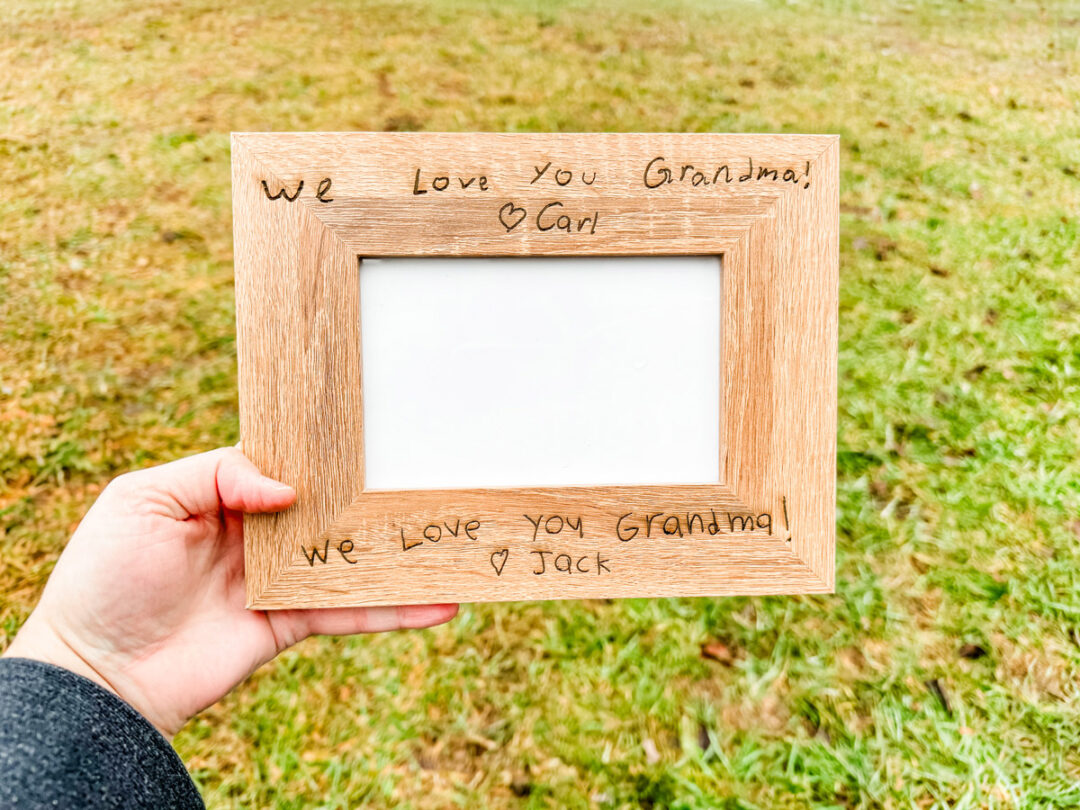 We Love You Grandma!
♡ Carl
We Love You Grandma!
♡ Jack